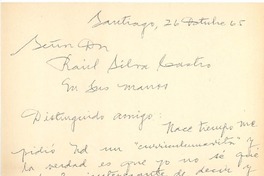 Santiago, 26 Octubre 65
Señor Don
Raúl Silva Castro
En sus manos
Distinguido amigo:
Hace tiempo me
pidió Ud un "curriculum vita" y
la verdad es que yo no sé que
interesante de decir y